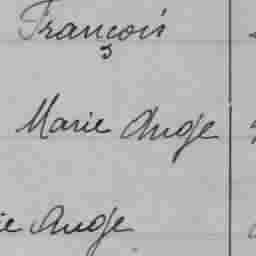 François
Marie Ange
ie Ange